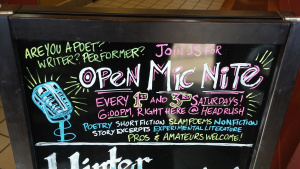 ARE YOU A POET?
WRITER? PERFORMER?
JOIN US FOR
OPEN MIC NITE
EVERY 1ST AND 3RD SATURDAYS!
6:00PM, RIGHT HERE @ HEADRUSH
POETRY SHORT FICTION SLAM POEMS NONFICTION
STORY EXCERPTS EXPERIMENTAL LITERATURE
PROS & AMATEURS WELCOME!
Winter